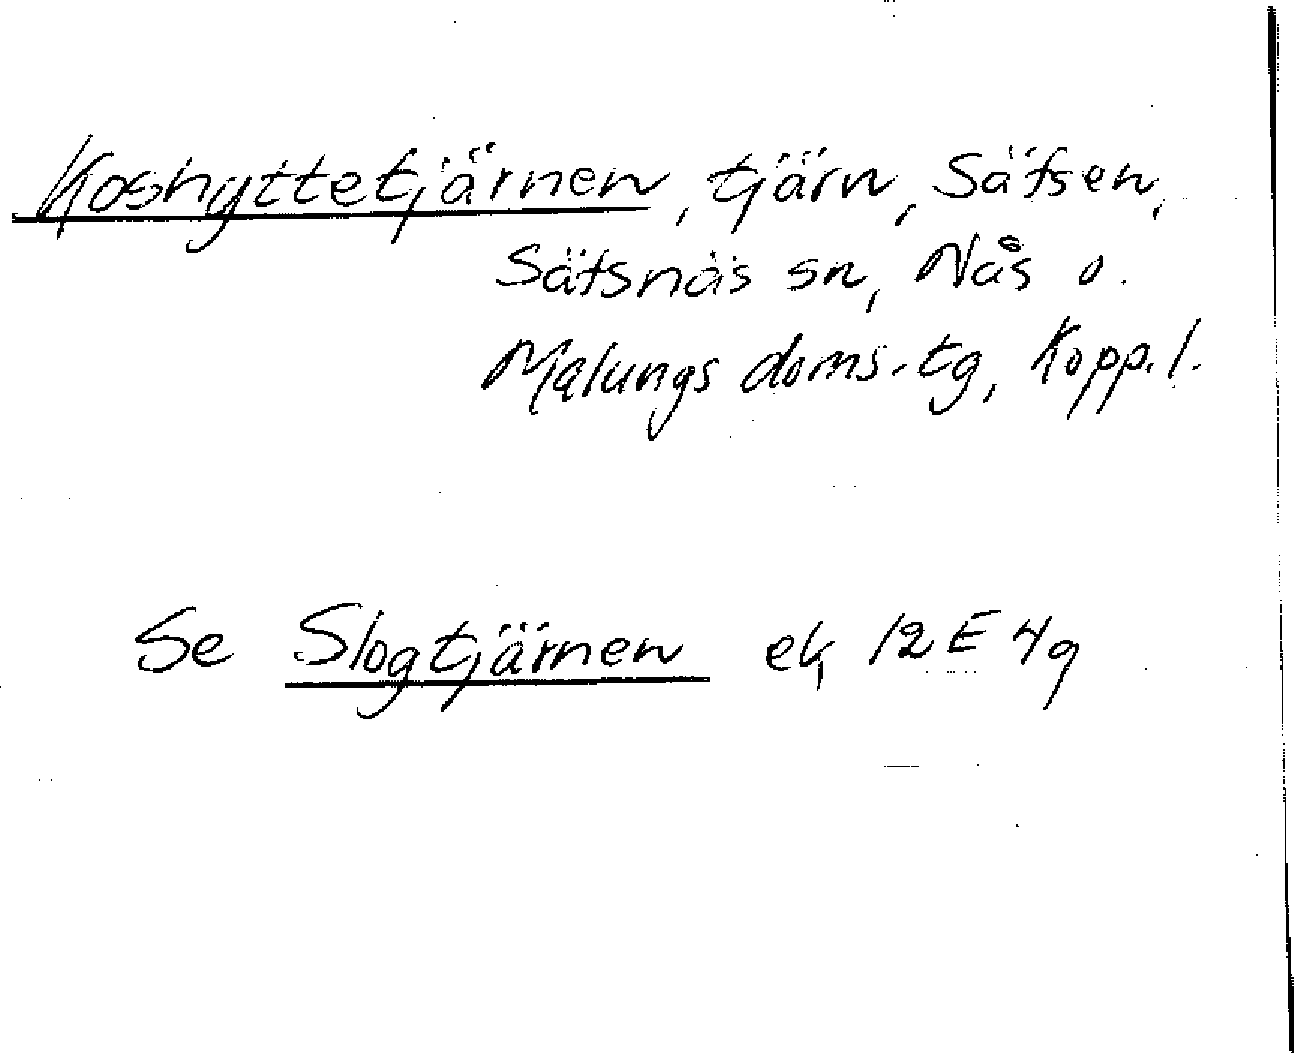 Koshyttetjärnen, tjärn, Säfsen,
Säfsnäs sn, Nås o.
Malungs doms.-tg, Kopp. l.
Se Slogtjärnen ek 12E 4g